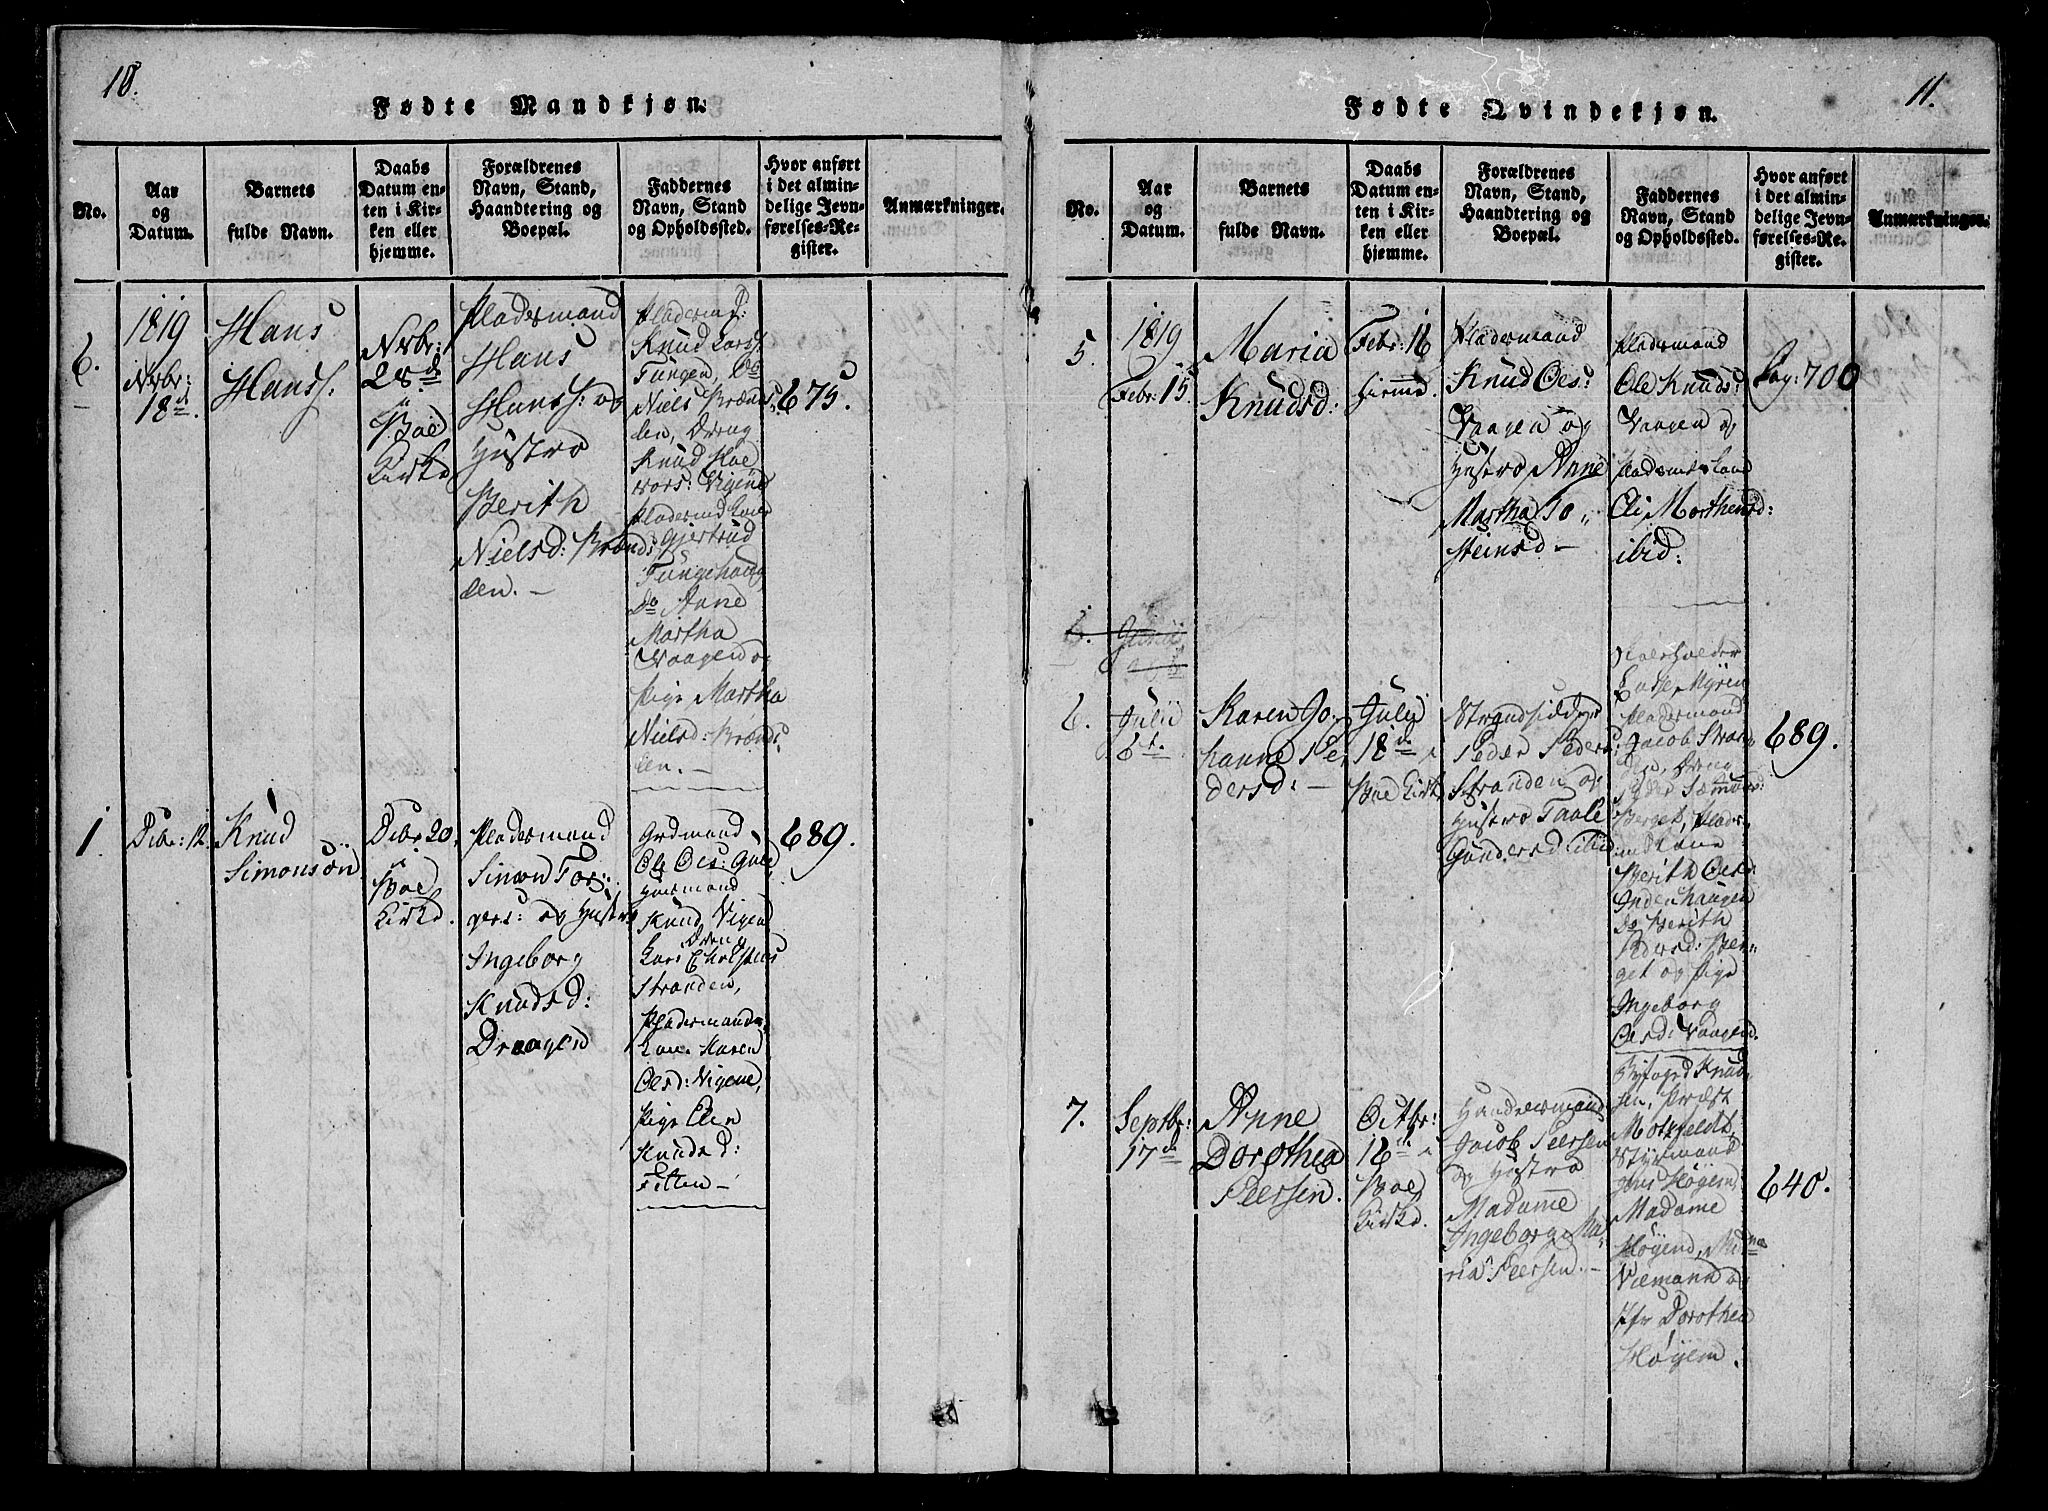 10.
Fødte Mandkjøn.
No.
Aar
og
Datum.
Barnets
fulde Navn.
Daabs
Datum en-
ten i Kir-
ken eller
hjemme.
Forældrenes
Navn, Stand,
Haandtering og
Boepæl.
Faddernes
Navn, Stand
og Opholdssted.
Hvor anført
i det almin-
delige Jevn-
førelses-Re-
gister.
Anmærkninger.
6.
1819
Novbr:
18d.
Hans
Hanss:
Novbr:
28de
i
Boe
Kirke
Pladsmand
Hans
Hanss: og
Hustro
Berith
Nielsd: Brænds
len. –
Knud Lars:
Tungen, Do
Niels Brænds
len, Dreng
Knud
Gjertrud
Tungehaug
Do Anne
Martha
Vaagen og
Pige Martha
Nielsd: Brænds
len. –
675.
1.
Debr: 12.
Knud
Simonsøn
Debr 20.
i
Boe
Kirke.
Pladsmand
Simon Tor:
gers: og Hustro
Ingeborg
Knudsd:
Draagen
Grdmand
Ole Oes:
Huusmand
Knud Vigen
Dreng
Lars Christens
Stranden,
Pladsmands
kone Karen
Olesd: Vigene,
Pige Elen
Knudsd:
Fitten –
689.
11.
Fødte Qvindekjøn.
No.
Aar
og
Datum.
Barnets
fulde Navn.
Daabs
Datum en-
ten i Kir-
ken eller
hjemme.
Forældrenes
Navn, Stand,
Haandtering og
Boepæl.
Faddernes
Navn, Stand
og Opholdssted.
Hvor anført
i det almin-
delige Jevn-
førelses-Re-
gister.
Anmærkninger.
5.
1819
Febr: 15.
Maria
Knudsd:
Febr: 16
hiemme.
Pladsmand
Knud Oes:
Vaagen og
Hustro Anne
Martha To,,
steinsd –
Pladsmand
Ole Knuds:
Vaagen og
Pladsmdskone
Eli Morthensd:
ibid:
Pag: 700
6.
6.
Julii
6t.
Karen Jo,
hanne Pe,
dersd: –
July
18de i
Boe Kirke
Strandsidder
Peder Peders:
Stranden og
Hustro Taale
Gundersd ibid
Lasse Myren
Pladsmand
Jacob Stran
den, Dreng
Peder
Berget, Plads,
md kone
Berith Oesd
Indenhaugen
Do Berith
Pedersd: Ber,
get og Pige
Ingeborg
Oesd: Vaagen.
689.
7.
Septbr:
17de
Anne
Dorothea
Peersen.
Octbr:
16de i
Boe
Kirke.
Handelsmand
Jacob Peersen
og Hustro
Madamme
Ingeborg Ma,
ria Peersen. –
Byfoged Knud,
sen, Præst
Motzfeldt,
Styrmand
Jens Høyem,
Madame
Høyem, Mdme
Niemann og
Jfr Dorothea
Høyem.
640.